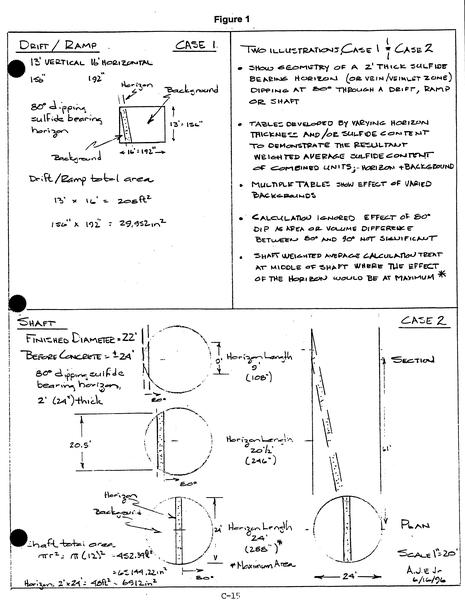 Figure 1
DRIFT / RAMP
CASE 1.
13' VERTICAL 16' HORIZONTAL
156" 192"
Horizon
Background
80° dipping
sulfide bearing
horizon
13' = 156"
Background
16' = 192"
Drift/Ramp total area
13' x 16' = 208 ft²
156" x 192" = 29,952 in²
TWO ILLUSTRATIONS, CASE 1 & CASE 2
• SHOW GEOMETRY OF A 2' THICK SULFIDE
BEARING HORIZON (OR VEIN/VEINLET ZONE)
DIPPING AT 80° THROUGH A DRIFT, RAMP
OR SHAFT
• TABLES DEVELOPED BY VARYING HORIZON
THICKNESS AND/OR SULFIDE CONTENT
TO DEMONSTRATE THE RESULTANT
WEIGHTED AVERAGE SULFIDE CONTENT
OF COMBINED UNITS, - HORIZON + BACKGROUND
• MULTIPLE TABLES SHOW EFFECT OF VARIED
BACKGROUNDS
• CALCULATION IGNORED EFFECT OF 80°
DIP AS AREA OR VOLUME DIFFERENCE
BETWEEN 80° AND 90° NOT SIGNIFICANT
• SHAFT WEIGHTED AVERAGE CALCULATION TREAT
AT MIDDLE OF SHAFT WHERE THE EFFECT
OF THE HORIZON WOULD BE AT MAXIMUM *
SHAFT
CASE 2
FINISHED DIAMETER = 22'
BEFORE CONCRETE = ±24'
80° dipping sulfide
bearing horizon,
2' (24") thick
9'
Horizon Length
9'
(108")
80°
SECTION
20.5'
Horizon Length
20½'
(246")
80°
61'
Horizon
Background
24'
Horizon Length
24'
(288")*
* Maximum Area
80°
PLAN
SCALE 1"=20'
24'
A.J.E. Jr
6/16/96
Shaft total area
πr² = π(12)² = 452.39 ft²
= 65,144.22 in²
Horizon, 2' x 24' = 48 ft² = 6912 in²
C-15